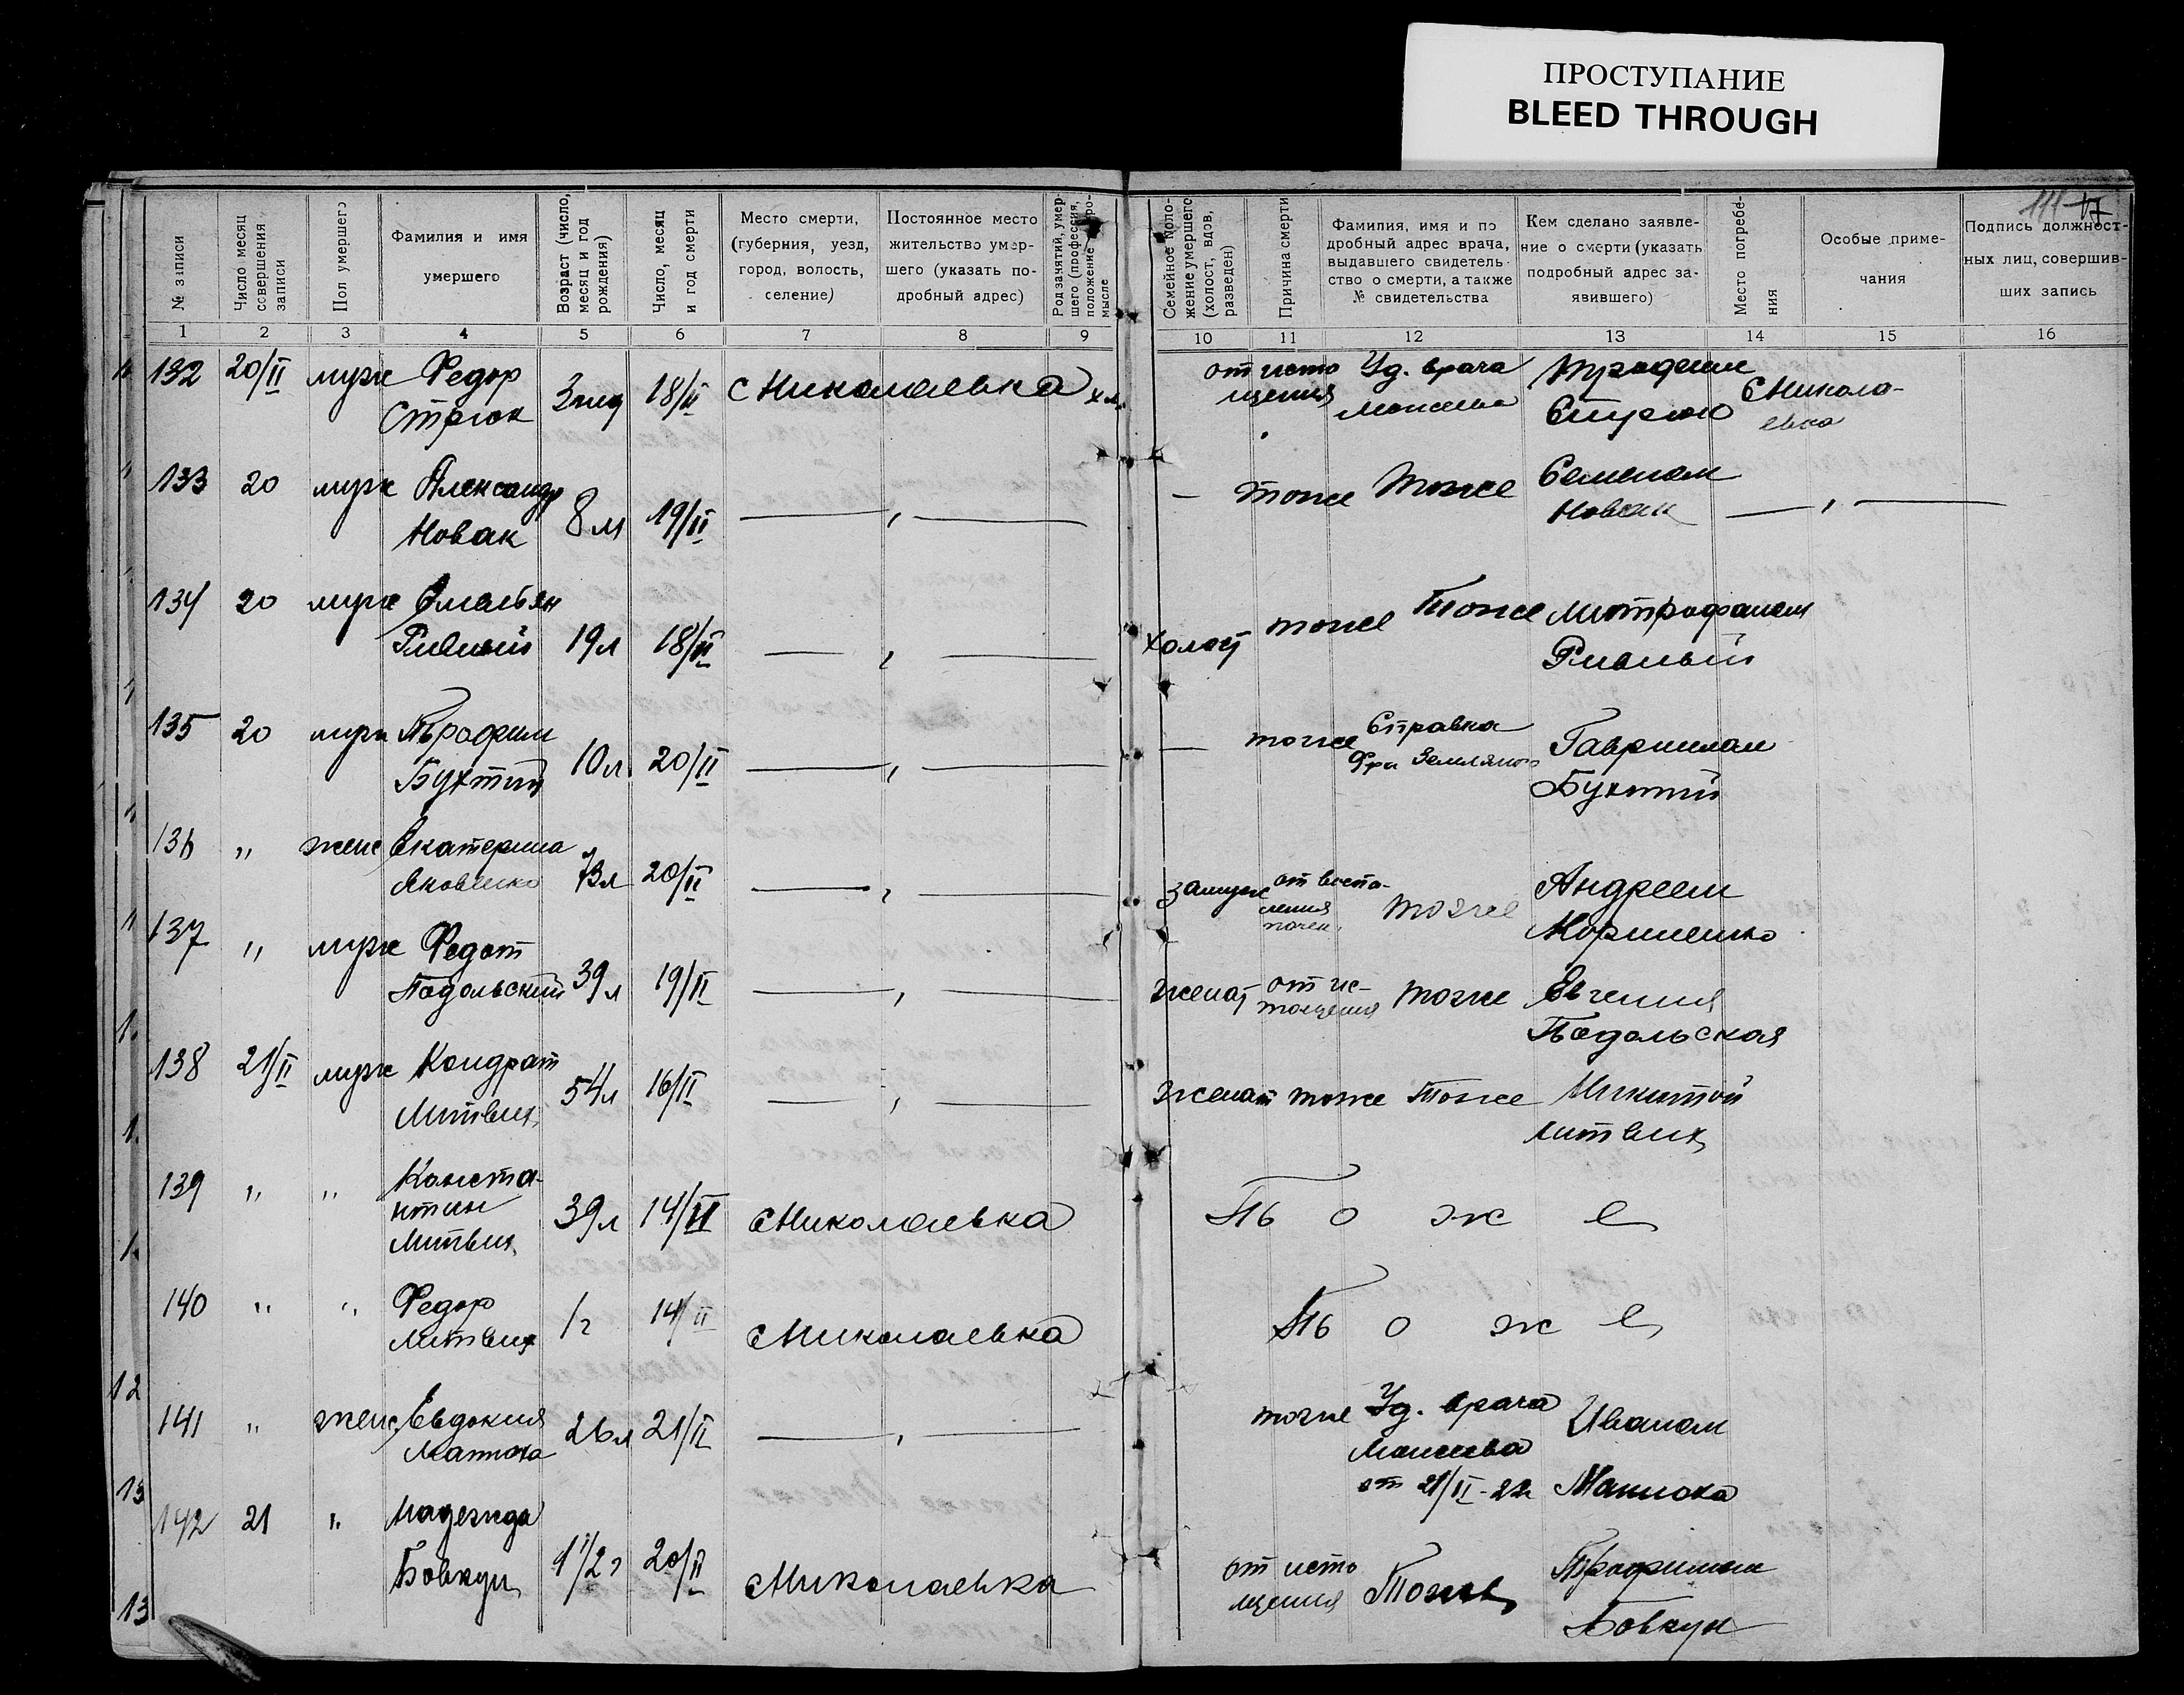 ПРОСТУПАНИЕ
BLEED THROUGH
№ записи
Число месяц совершения записи
Пол умершего
Фамилия и имя умершего
Возраст (число, месяц и год рождения)
Число, месяц и год смерти
Место смерти, (губерния, уезд, город, волость, селение)
Постоянное место жительство умершего (указать подробный адрес)
Род занятий, умершего (профессия, положение в промысле
Семейное положение умершего (холост, вдов, разведен)
Причина смерти
Фамилия, имя и подробный адрес врача, выдавшего свидетельство о смерти, а также № свидетельства
Кем сделано заявление о смерти (указать подробный адрес заявившего)
Место погребения
Особые примечания
Подпись должностных лиц, совершивших запись
1 2 3 4 5 6 7 8 9 10 11 12 13 14 15 16
132 20/II муж Федор 18/II с Николаевка от исто Уд. врача с Никола-
Стрюк щения Моисеева Стрюк евка
133 20 муж Александр 8 м 19/II — " — — тоже тоже Семеном — " —
Новак Новак
134 20 муж Емельян 19 л 18/II — " — холост тоже тоже Митрофаном
Ривный Ривный
135 20 муж Трофим 10 л 20/II — " — — тоже Справка Гавриилом
Бухтий Земляного Бухтий
136 " женс Екатерина 73 л 20/II — " — замуж от воспа- тоже Андреем
Яковенко ления
почек
137 " муж Федот 39 л 19/II — " — женат от ис- тоже Евгения
Подольский тощения Подольская
138 21/II муж Кондрат 54 л 16/II — " — женат тоже тоже Микитой
Литвин Литвин
139 " " Конста- 39 л 14/II с Николаевка Т о ж е
нтин
Литвин
140 " " Федор 1 г 14/II с Николаевка Т о ж е
Литвин
141 " женс Евдокия 26 л 21/II — " — тоже Уд. врача Иваном
Матюха Моисеева
от 21/II-22 Матюха
142 21 " Надежда 1 1/2 г 20/II с Николаевка от исто Тоже Трофимом
Бовкун щения Бовкун